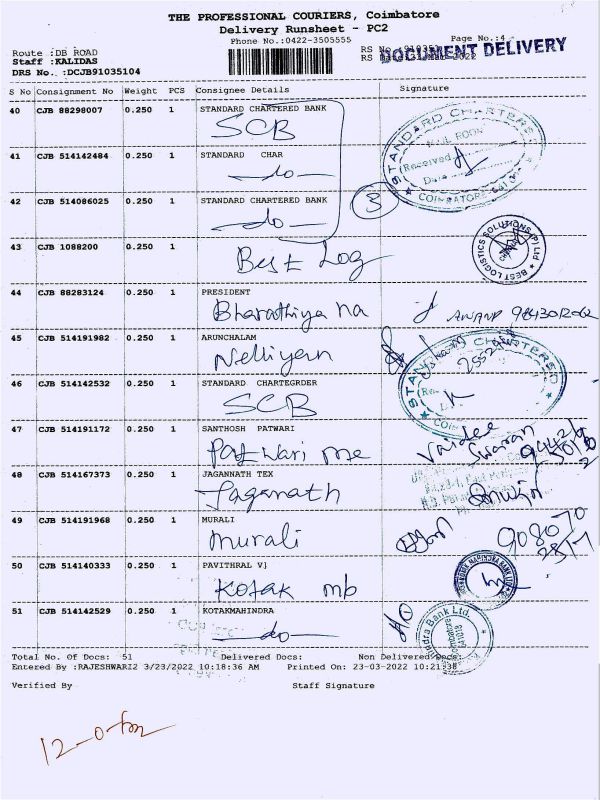 THE PROFESSIONAL COURIERS, Coimbatore
Delivery Runsheet - PC2
Phone No.:0422-3505555
Page No.:4
DOCUMENT DELIVERY
Route :DB ROAD
Staff :KALIDAS
DRS No. :DCJB91035104
S No Consignment No Weight PCS Consignee Details Signature
40 CJB 88298007 0.250 1 STANDARD CHARTERED BANK
SCB
41 CJB 514142484 0.250 1 STANDARD CHAR
-do-
42 CJB 514086025 0.250 1 STANDARD CHARTERED BANK
-do-
3
STANDARD CHARTERED
Received
Date
COIMBATORE
43 CJB 1088200 0.250 1
Best Log
BEST LOGISTICS SOLUTIONS (P) Ltd
44 CJB 88283124 0.250 1 PRESIDENT
Bharathiya na
ANAND 9843012062
45 CJB 514191982 0.250 1 ARUNCHALAM
Nelliyan
46 CJB 514142532 0.250 1 STANDARD CHARTEGRDER
SCB
47 CJB 514191172 0.250 1 SANTHOSH PATWARI
Patwari me
48 CJB 514167373 0.250 1 JAGANNATH TEX
Jaganath
49 CJB 514191968 0.250 1 MURALI
Murali
50 CJB 514140333 0.250 1 PAVITHRAL Vj
Kotak mb
51 CJB 514142529 0.250 1 KOTAKMAHINDRA
-do-
Total No. Of Docs: 51 Delivered Docs: Non Delivered Docs:
Entered By :RAJESHWARI2 3/23/2022 10:18:36 AM Printed On: 23-03-2022 10:21:38
Verified By Staff Signature